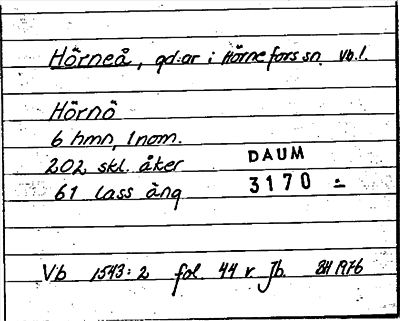 Hörneå, gd:ar i Hörnefors sn. Vb.l.
Hörnö
6 hmn, 1 nom.
202 skl. åker
61 lass äng
DAUM
3170 :-
Vb 1543:2 fol. 44 v Jb. 1976